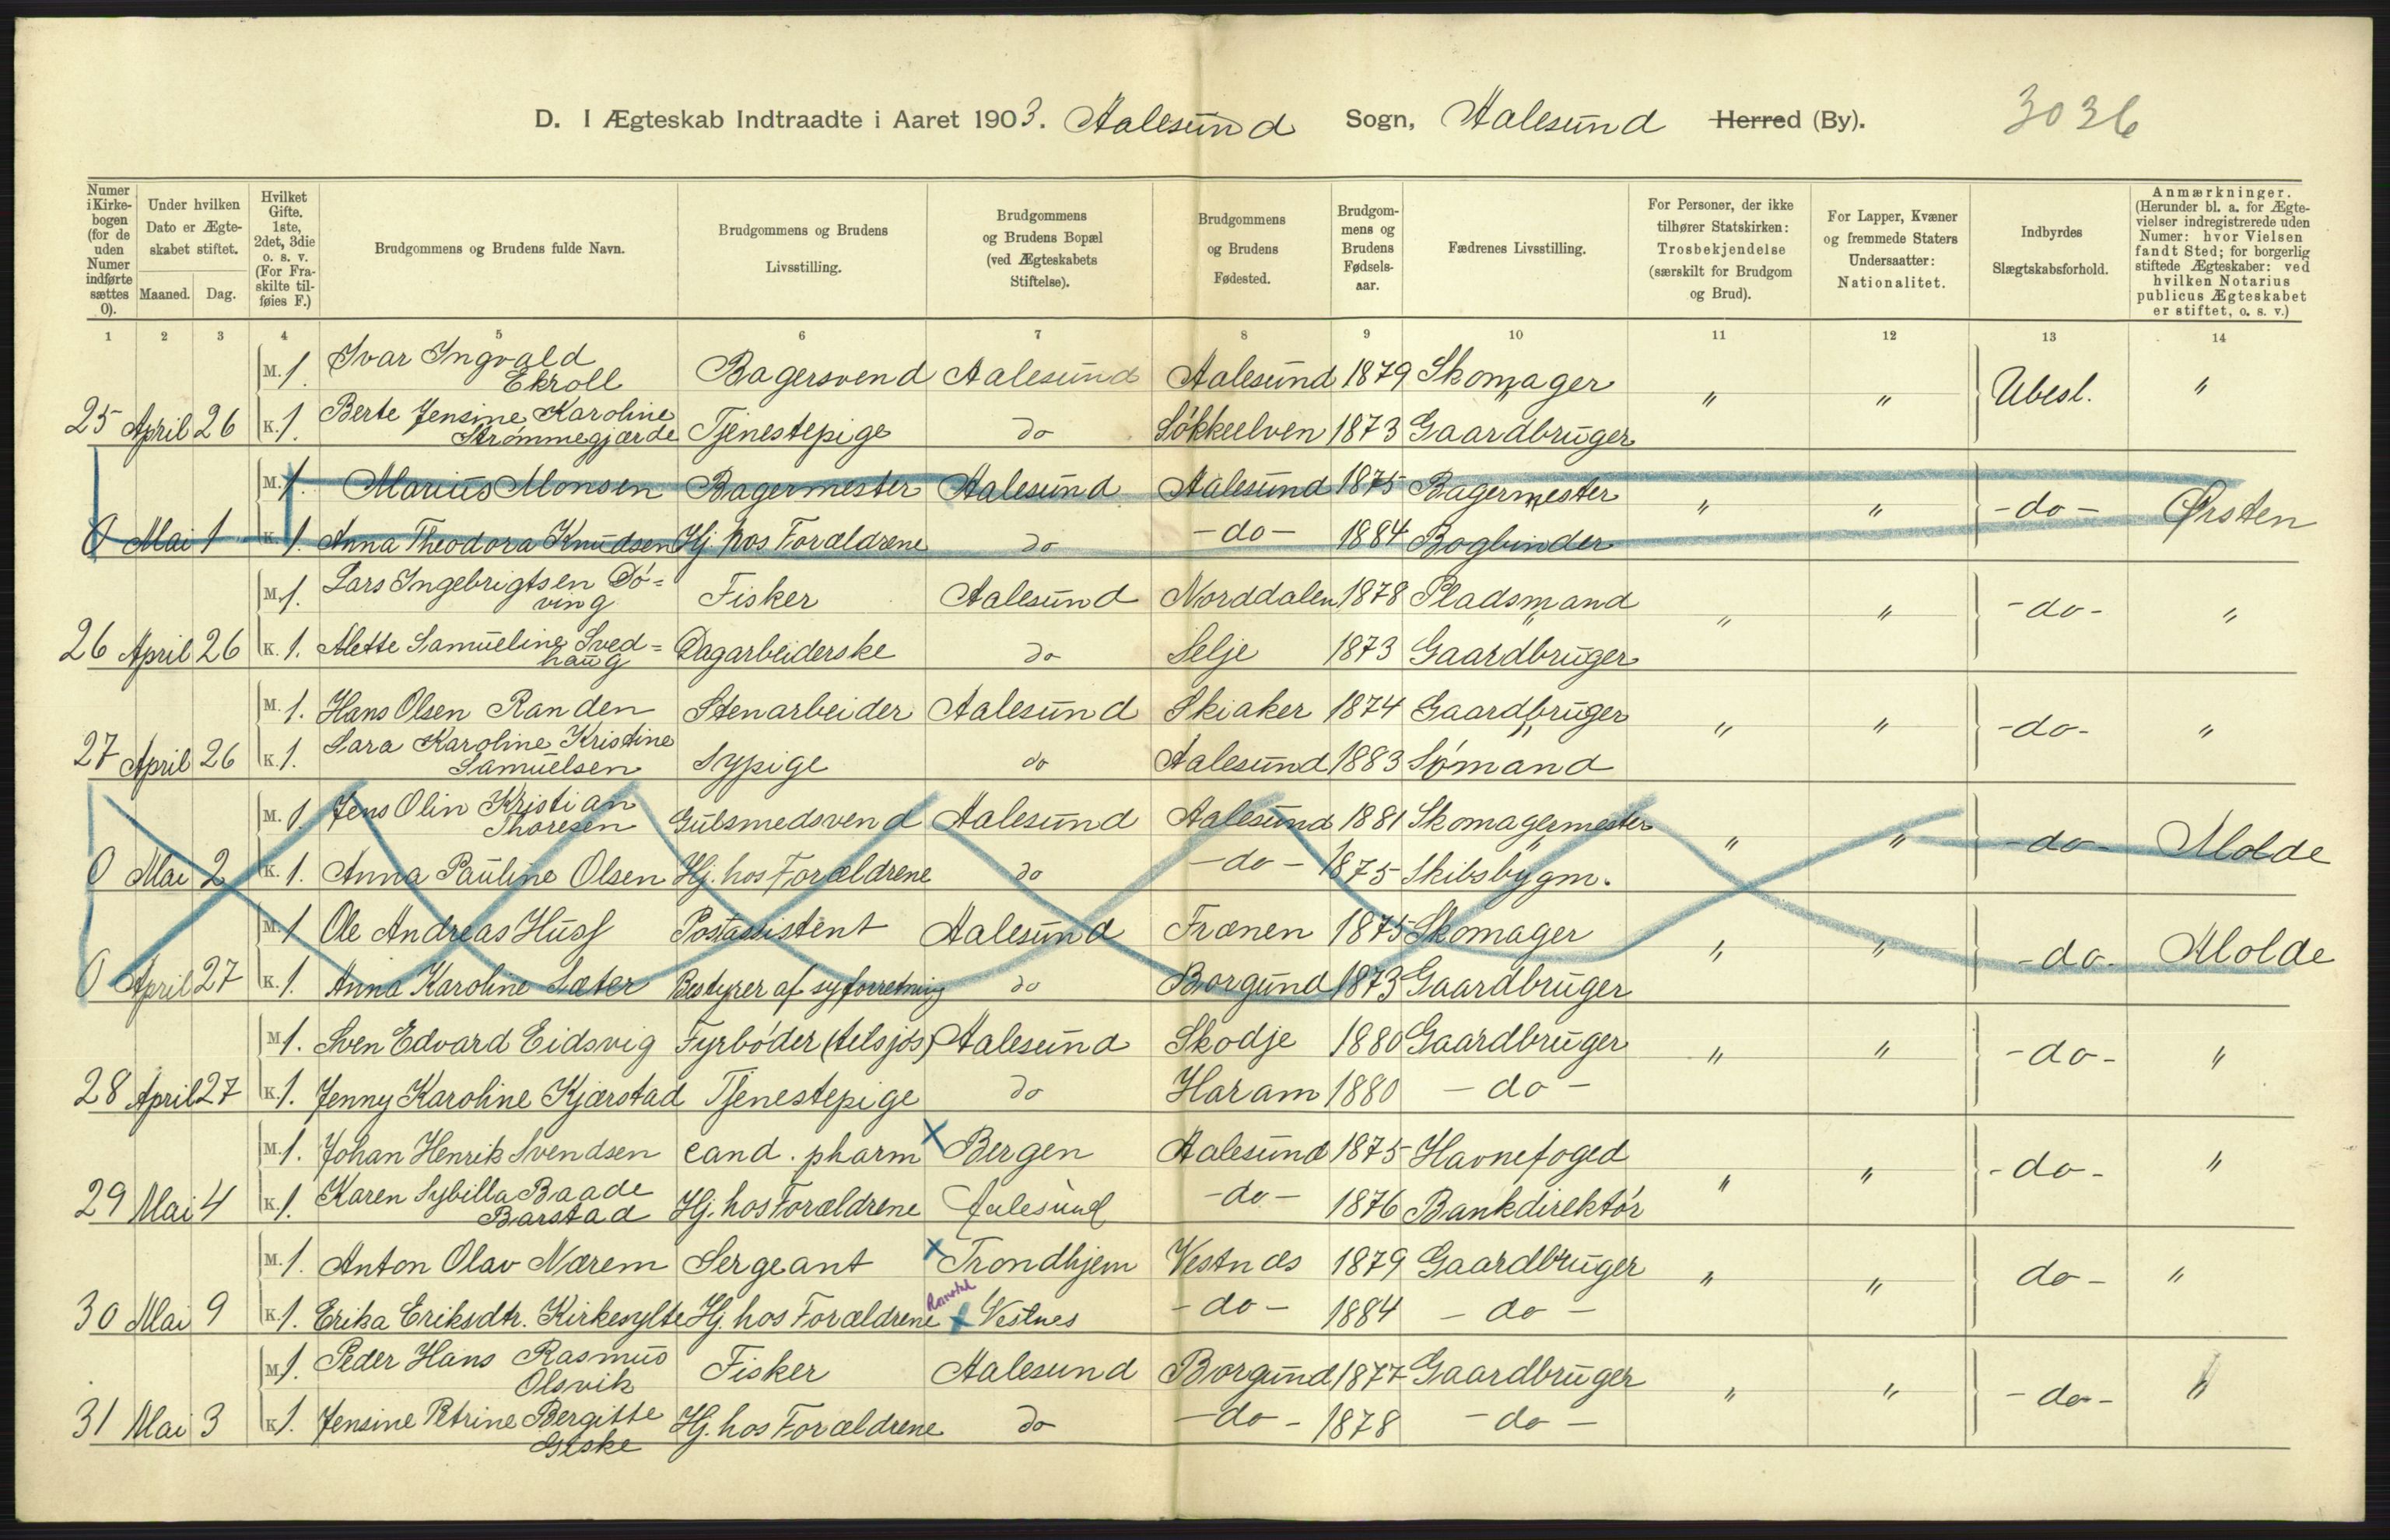 D. I Ægteskab Indtraadte i Aaret 1903. Aalesund Sogn, Aalesund Herred (By). 3036
Numer i Kirke-bogen (for de uden Numer indførte sættes 0).
Under hvilken Dato er Ægte-skabet stiftet.
Maaned. Dag.
Hvilket Gifte. 1ste, 2det, 3die o. s. v. (For Fra-skilte til-føies F.)
Brudgommens og Brudens fulde Navn.
Brudgommens og Brudens Livsstilling.
Brudgommens og Brudens Bopæl (ved Ægteskabets Stiftelse).
Brudgommens og Brudens Fødested.
Brudgom-mens og Brudens Fødsels-aar.
Fædrenes Livsstilling.
For Personer, der ikke tilhører Statskirken: Trosbekjendelse (særskilt for Brudgom og Brud).
For Lapper, Kvæner og fremmede Staters Undersaatter: Nationalitet.
Indbyrdes Slægtskabsforhold.
Anmærkninger. (Herunder bl. a. for Ægte-vielser indregistrerede uden Numer: hvor Vielsen fandt Sted; for borgerlig stiftede Ægteskaber: ved hvilken Notarius publicus Ægteskabet er stiftet, o. s. v.)
1 2 3 4 5 6 7 8 9 10 11 12 13 14
M. 1. Ivar Ingvald Ekroll Bagersvend Aalesund Aalesund 1879 Skomager " " Ubesl. "
25 April 26 K. 1. Berte Jensine Karoline Strømmegjærde Tjenestepige do Søkkelven 1873 Gaardbruger
M. 1. Marius Monsen Bagermester Aalesund Aalesund 1875 Bagermester " " -do- Ørsten
0 Mai 1 K. 1. Anna Theodora Knudsen Hj. hos Forældrene do -do- 1884 Bogbinder
M. 1. Lars Ingebrigtsen Dö=ving Fisker Aalesund Norddalen 1878 Pladsmand " " -do- "
26 April 26 K. 1. Alette Samueline Sved=haug Dagarbeiderske do Selje 1873 Gaardbruger
M. 1. Hans Olsen Randen Stenarbeider Aalesund Skiaker 1874 Gaardbruger " " -do- "
27 April 26 K. 1. Sara Karoline Kristine Samuelsen Sypige do Aalesund 1883 Sømand
M. 1. Jens Olin Kristian Thoresen Gulsmedsvend Aalesund Aalesund 1881 Skomagermester " " -do- Molde
0 Mai 2 K. 1. Anna Pauline Olsen Hj. hos Forældrene do -do- 1875 Skibsbygm.
M. 1 Ole Andreas Huse Postassistent Aalesund Frænen 1875 Skomager " " -do- Molde
0 April 27 K. 1. Anna Karoline Sæter Bestyrer af syforretning do Borgund 1873 Gaardbruger
M 1. Sven Edvard Eidsvig Fyrbøder (tilsjøs) Aalesund Skodje 1880 Gaardbruger " " -do- "
28 April 27 K. 1. Jenny Karoline Kjærstad Tjenestepige do Haram 1880 -do-
M. 1. Johan Henrik Svendsen cand. pharm x Bergen Aalesund 1875 Havnefoged " " -do- "
29 Mai 4 K. 1. Karen Sybilla Baade Barstad Hj. hos Forældrene Aalesund -do- 1876 Bankdirektør
M. 1. Anton Olav Nærem Sergeant x Trondhjem Vestnæs 1879 Gaardbruger " " do- "
30 Mai 9 K 1. Erika Eriksdtr. Kirkesylte Hj. hos Forældrene x Vestnes -do- 1884 -do-
M 1. Peder Hans Rasmus Olsvik Fisker Aalesund Borgund 1877 Gaardbruger " " -do- "
31 Mai 3 K 1. Jensine Petrine Bergitte Giske Hj. hos Forældrene do -do- 1878 -do-